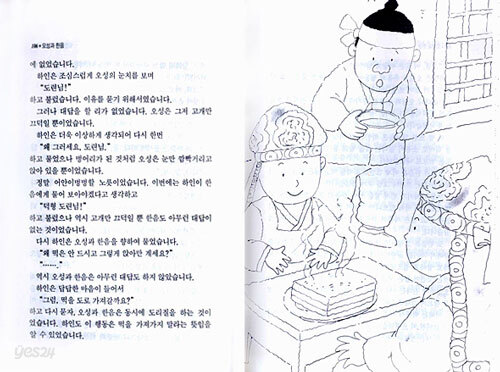 오성과 한음
에 없었습니다.
하인은 조심스럽게 오성의 눈치를 보며
"도련님!"
하고 불렀습니다. 이유를 묻기 위해서였습니다.
그러나 대답을 할 리가 없었습니다. 오성은 그저 고개만
끄덕일 뿐이었습니다.
하인은 더욱 이상하게 생각되어 다시 한번
"왜 그러세요, 도련님."
하고 물었으나 벙어리가 된 것처럼 오성은 눈만 깜빡거리고
앉아 있을 뿐이었습니다.
정말 어안이벙벙할 노릇이었습니다. 이번에는 하인이 한
음에게 물어 보아야겠다고 생각하고
"덕형 도련님!"
하고 불렀으나 역시 고개만 끄덕일 뿐 한음도 아무런 대답이
없는 것이었습니다.
다시 하인은 오성과 한음을 향하여 물었습니다.
"왜 떡은 안 드시고 그렇게 앉아만 계세요?"
"……."
역시 오성과 한음은 아무런 대답도 하지 않았습니다.
하인은 답답한 마음이 들어서
"그럼, 떡을 도로 가져갈까요?"
하고 다시 묻자, 오성과 한음은 동시에 도리질을 하는 것이
었습니다. 하인도 이 행동은 떡을 가져가지 말라는 뜻임을
알 수 있었습니다.
yes24